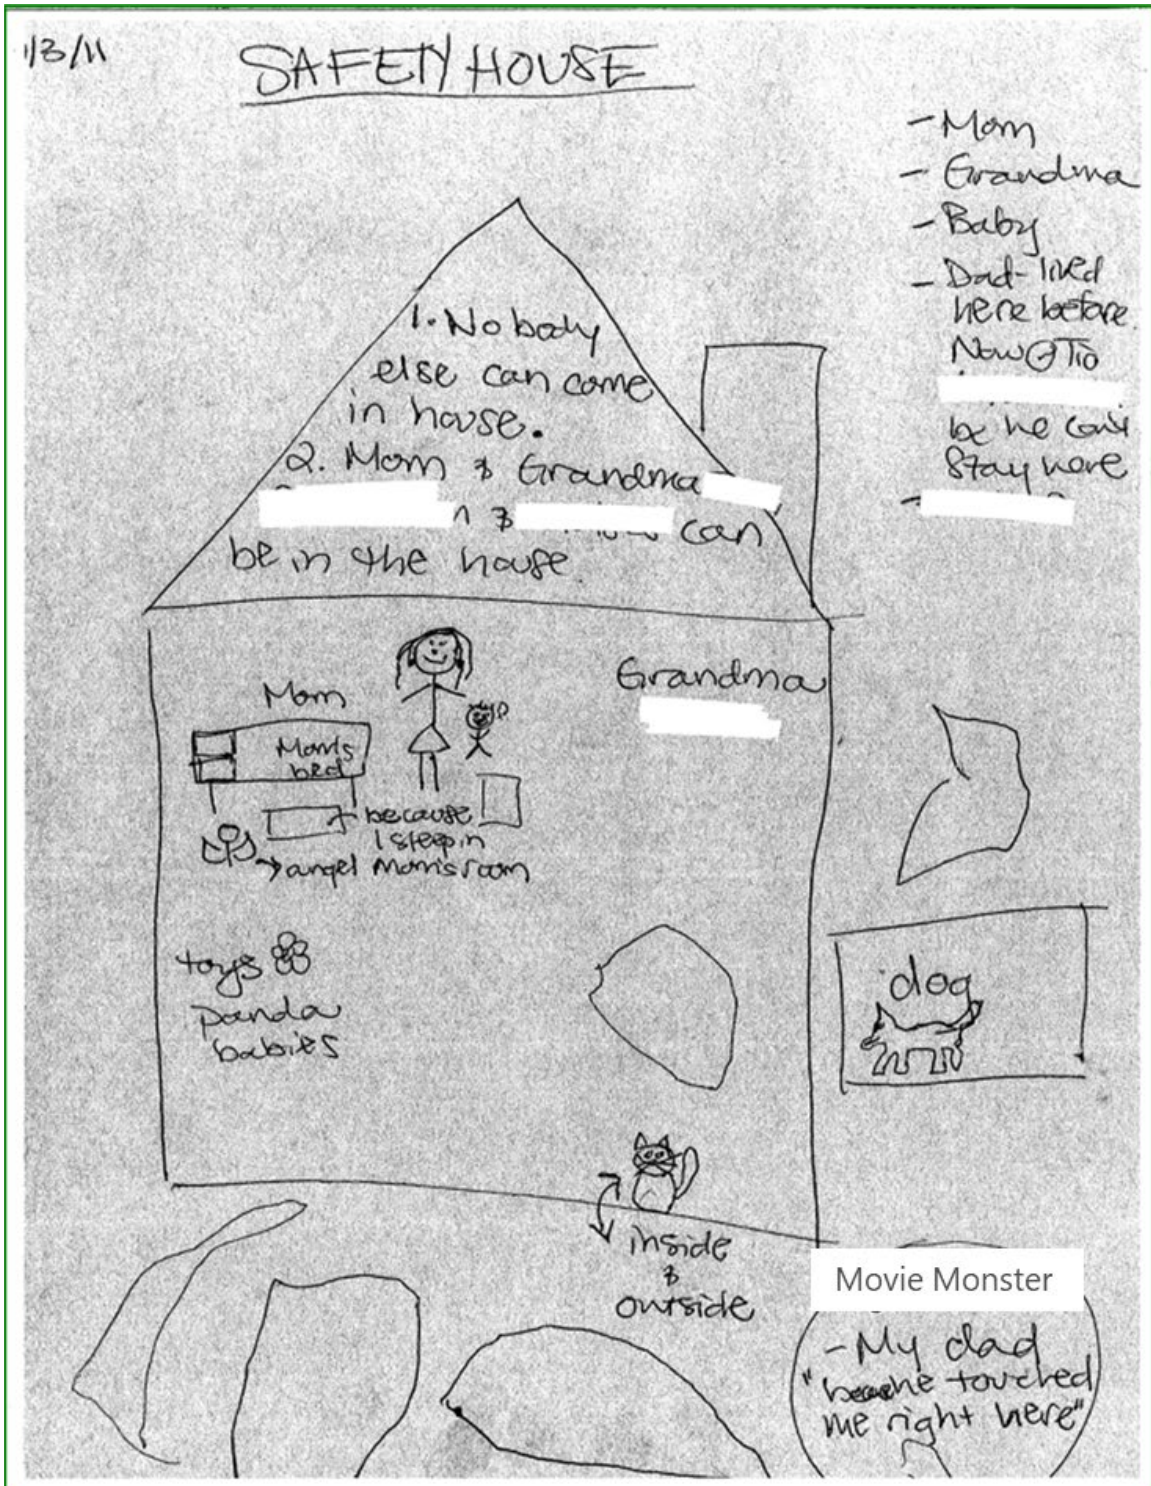 1/3/11
SAFETY HOUSE
- Mom
- Grandma
- Baby
- Dad-lived
here before.
Now @ Tio
bc he can't
stay here
-
1. Nobody
else can come
in house.
2. Mom & Grandma
n & can
be in the house
Mom
Mom's
bed
because
I sleep in
Mom's room
angel
Grandma
toys
panda
babies
dog
inside
&
outside
Movie Monster
- My dad
"he touched
me right here"